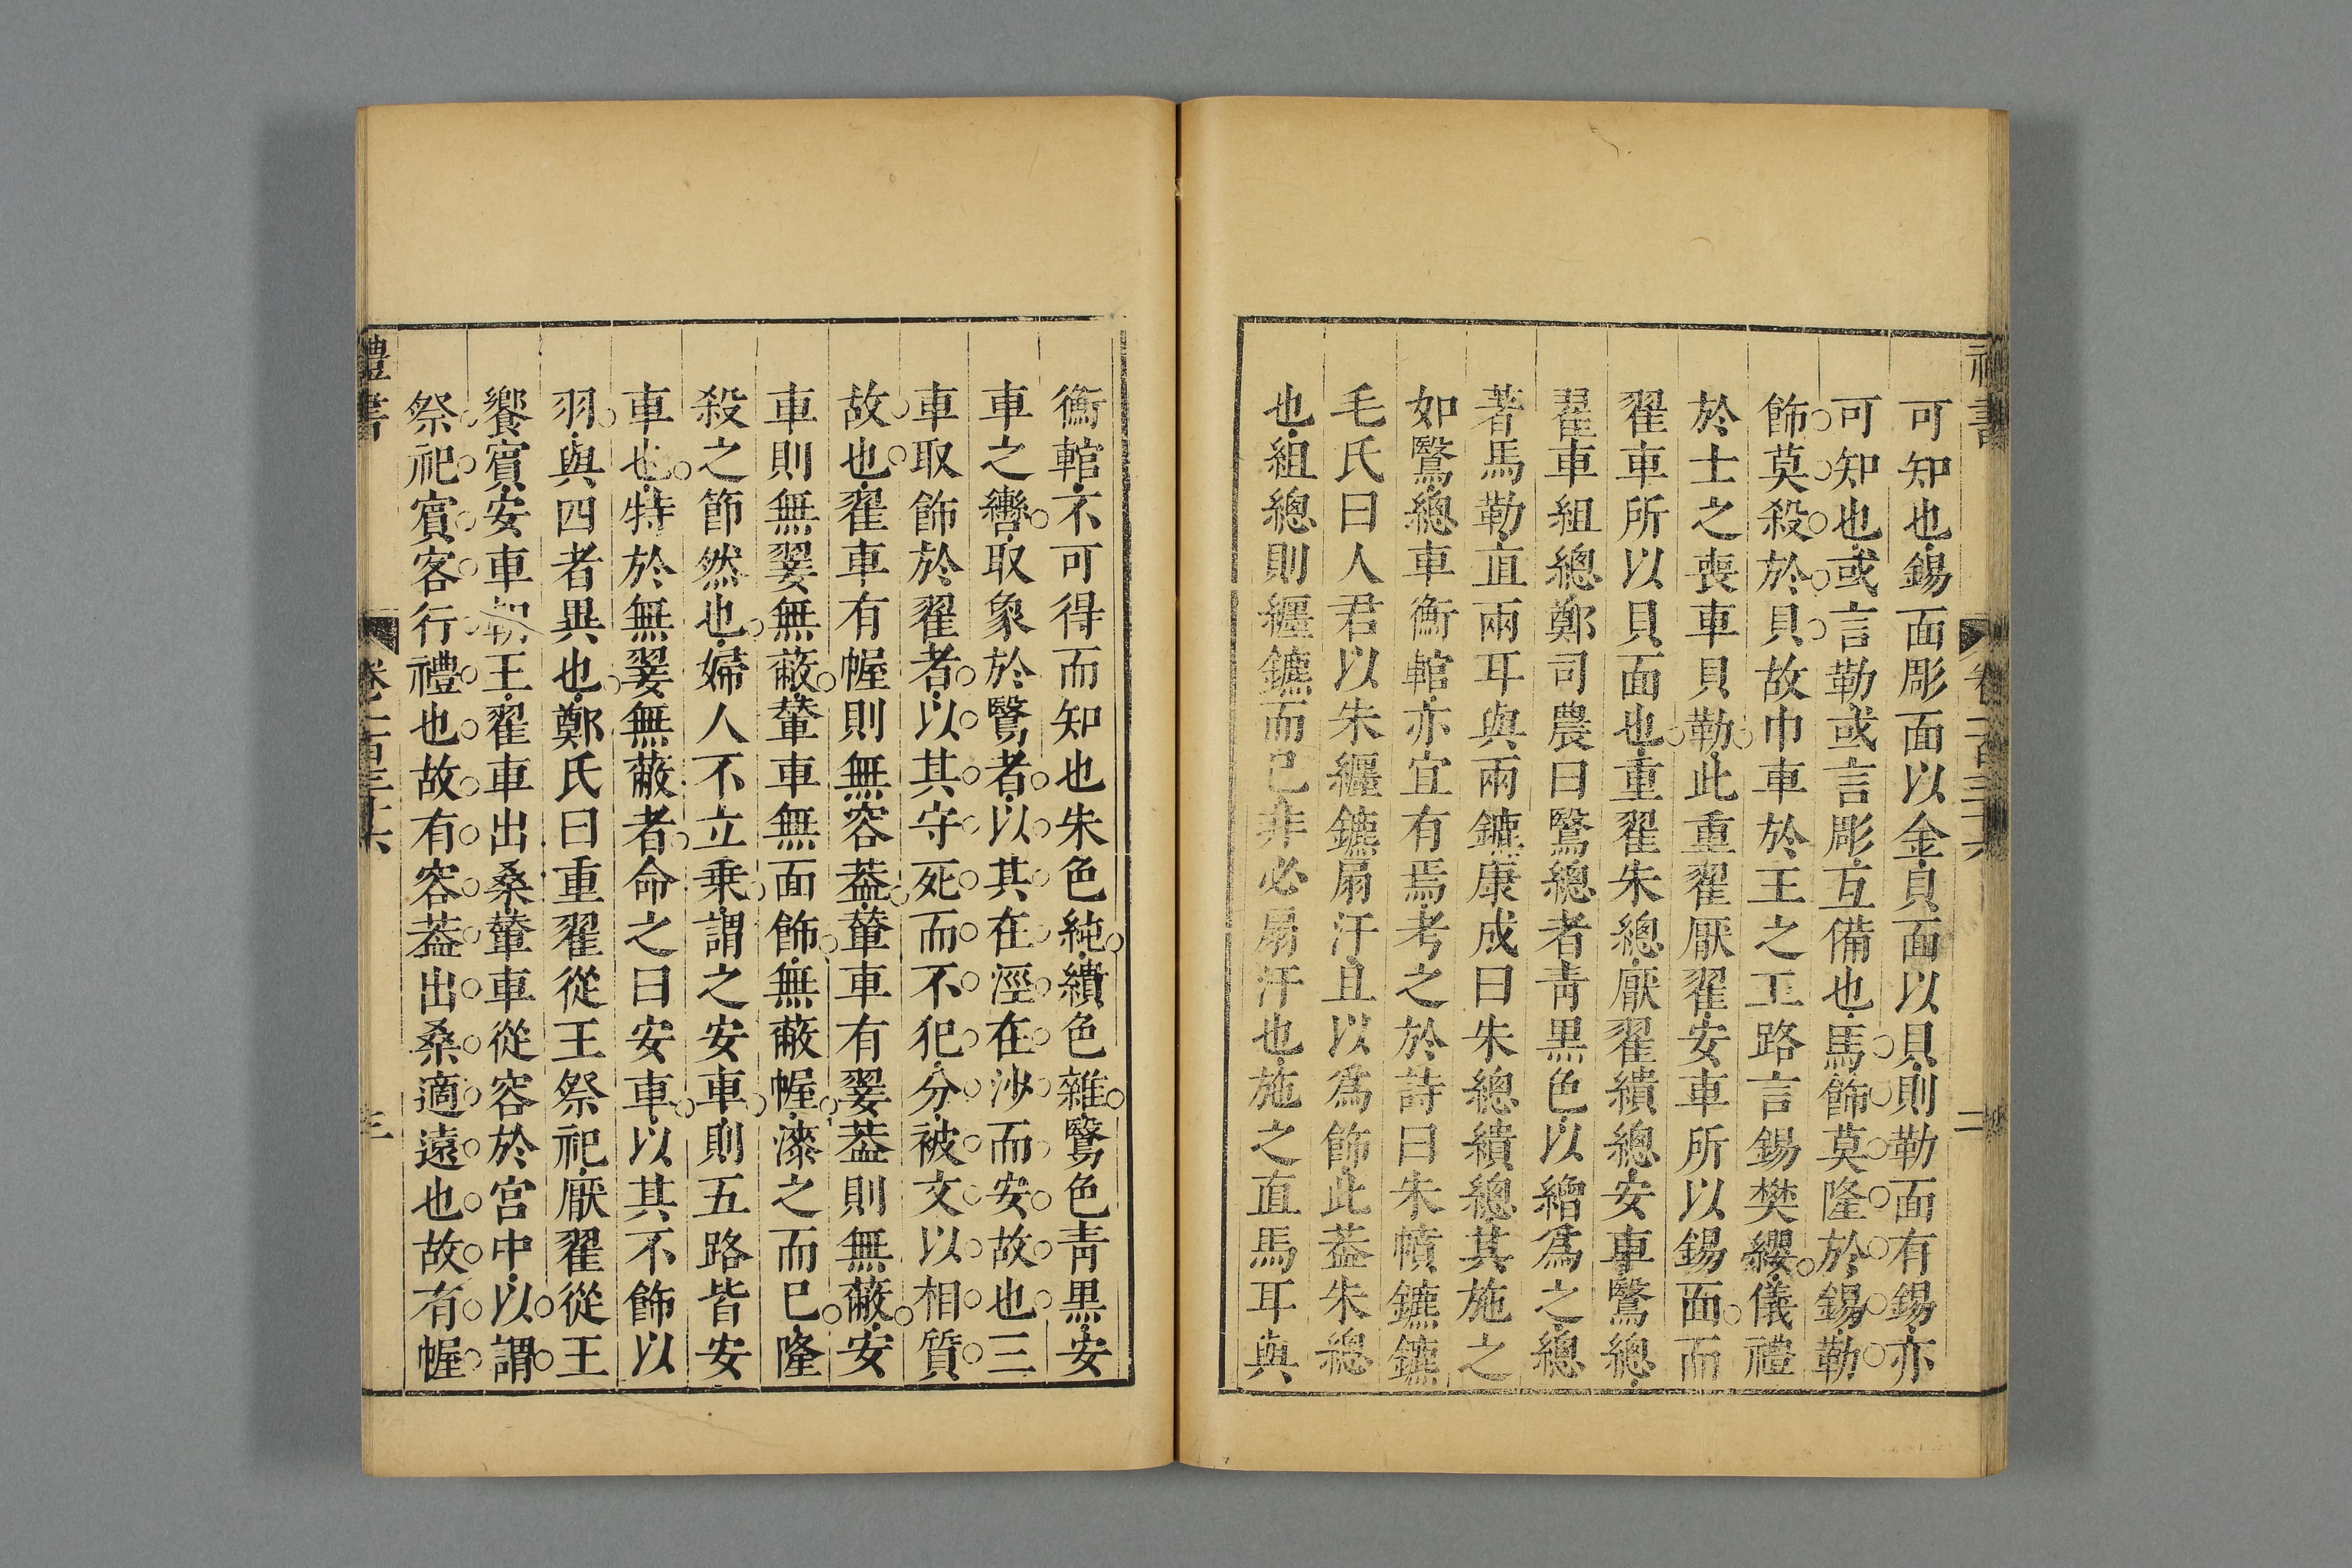 可知也錫面彫面以金貝面以貝則勒面有錫亦
可知也或言勒或言彫互備也馬飾莫隆於錫勒
飾莫殺於貝故巾車於王之王路言錫樊纓儀禮
於士之喪車貝勒此重翟厭翟安車所以錫面而
翟車所以貝面也重翟朱總厭翟繢總安車鷖總
翟車組總鄭司農曰鷖總者青黑色以繒爲之總
著馬勒直兩耳與兩鑣康成曰朱總繢總其施之
如鷖總車衡輨亦宜有焉考之於詩曰朱幩鑣鑣
毛氏曰人君以朱纒鑣扇汗且以爲飾此葢朱總
也組總則纒鑣而已非必扇汗也施之直馬耳與
衡輨不可得而知也朱色純繢色雜鷖色青黑安
車之轡取象於鷖者以其在涇在沙而安故也三
車取飾於翟者以其守死而不犯分被文以相質
故也翟車有幄則無容葢輦車有翣葢則無蔽安
車則無翣無蔽輦車無面飾無蔽幄漆之而已隆
殺之節然也婦人不立乗謂之安車則五路皆安
車也特於無翣無蔽者命之曰安車以其不飾以
羽與四者異也鄭氏曰重翟從王祭祀厭翟從王
饗賔安車朝王翟車出桑輦車從容於宮中以謂
祭祀賔客行禮也故有容葢出桑適遠也故有幄
禮書